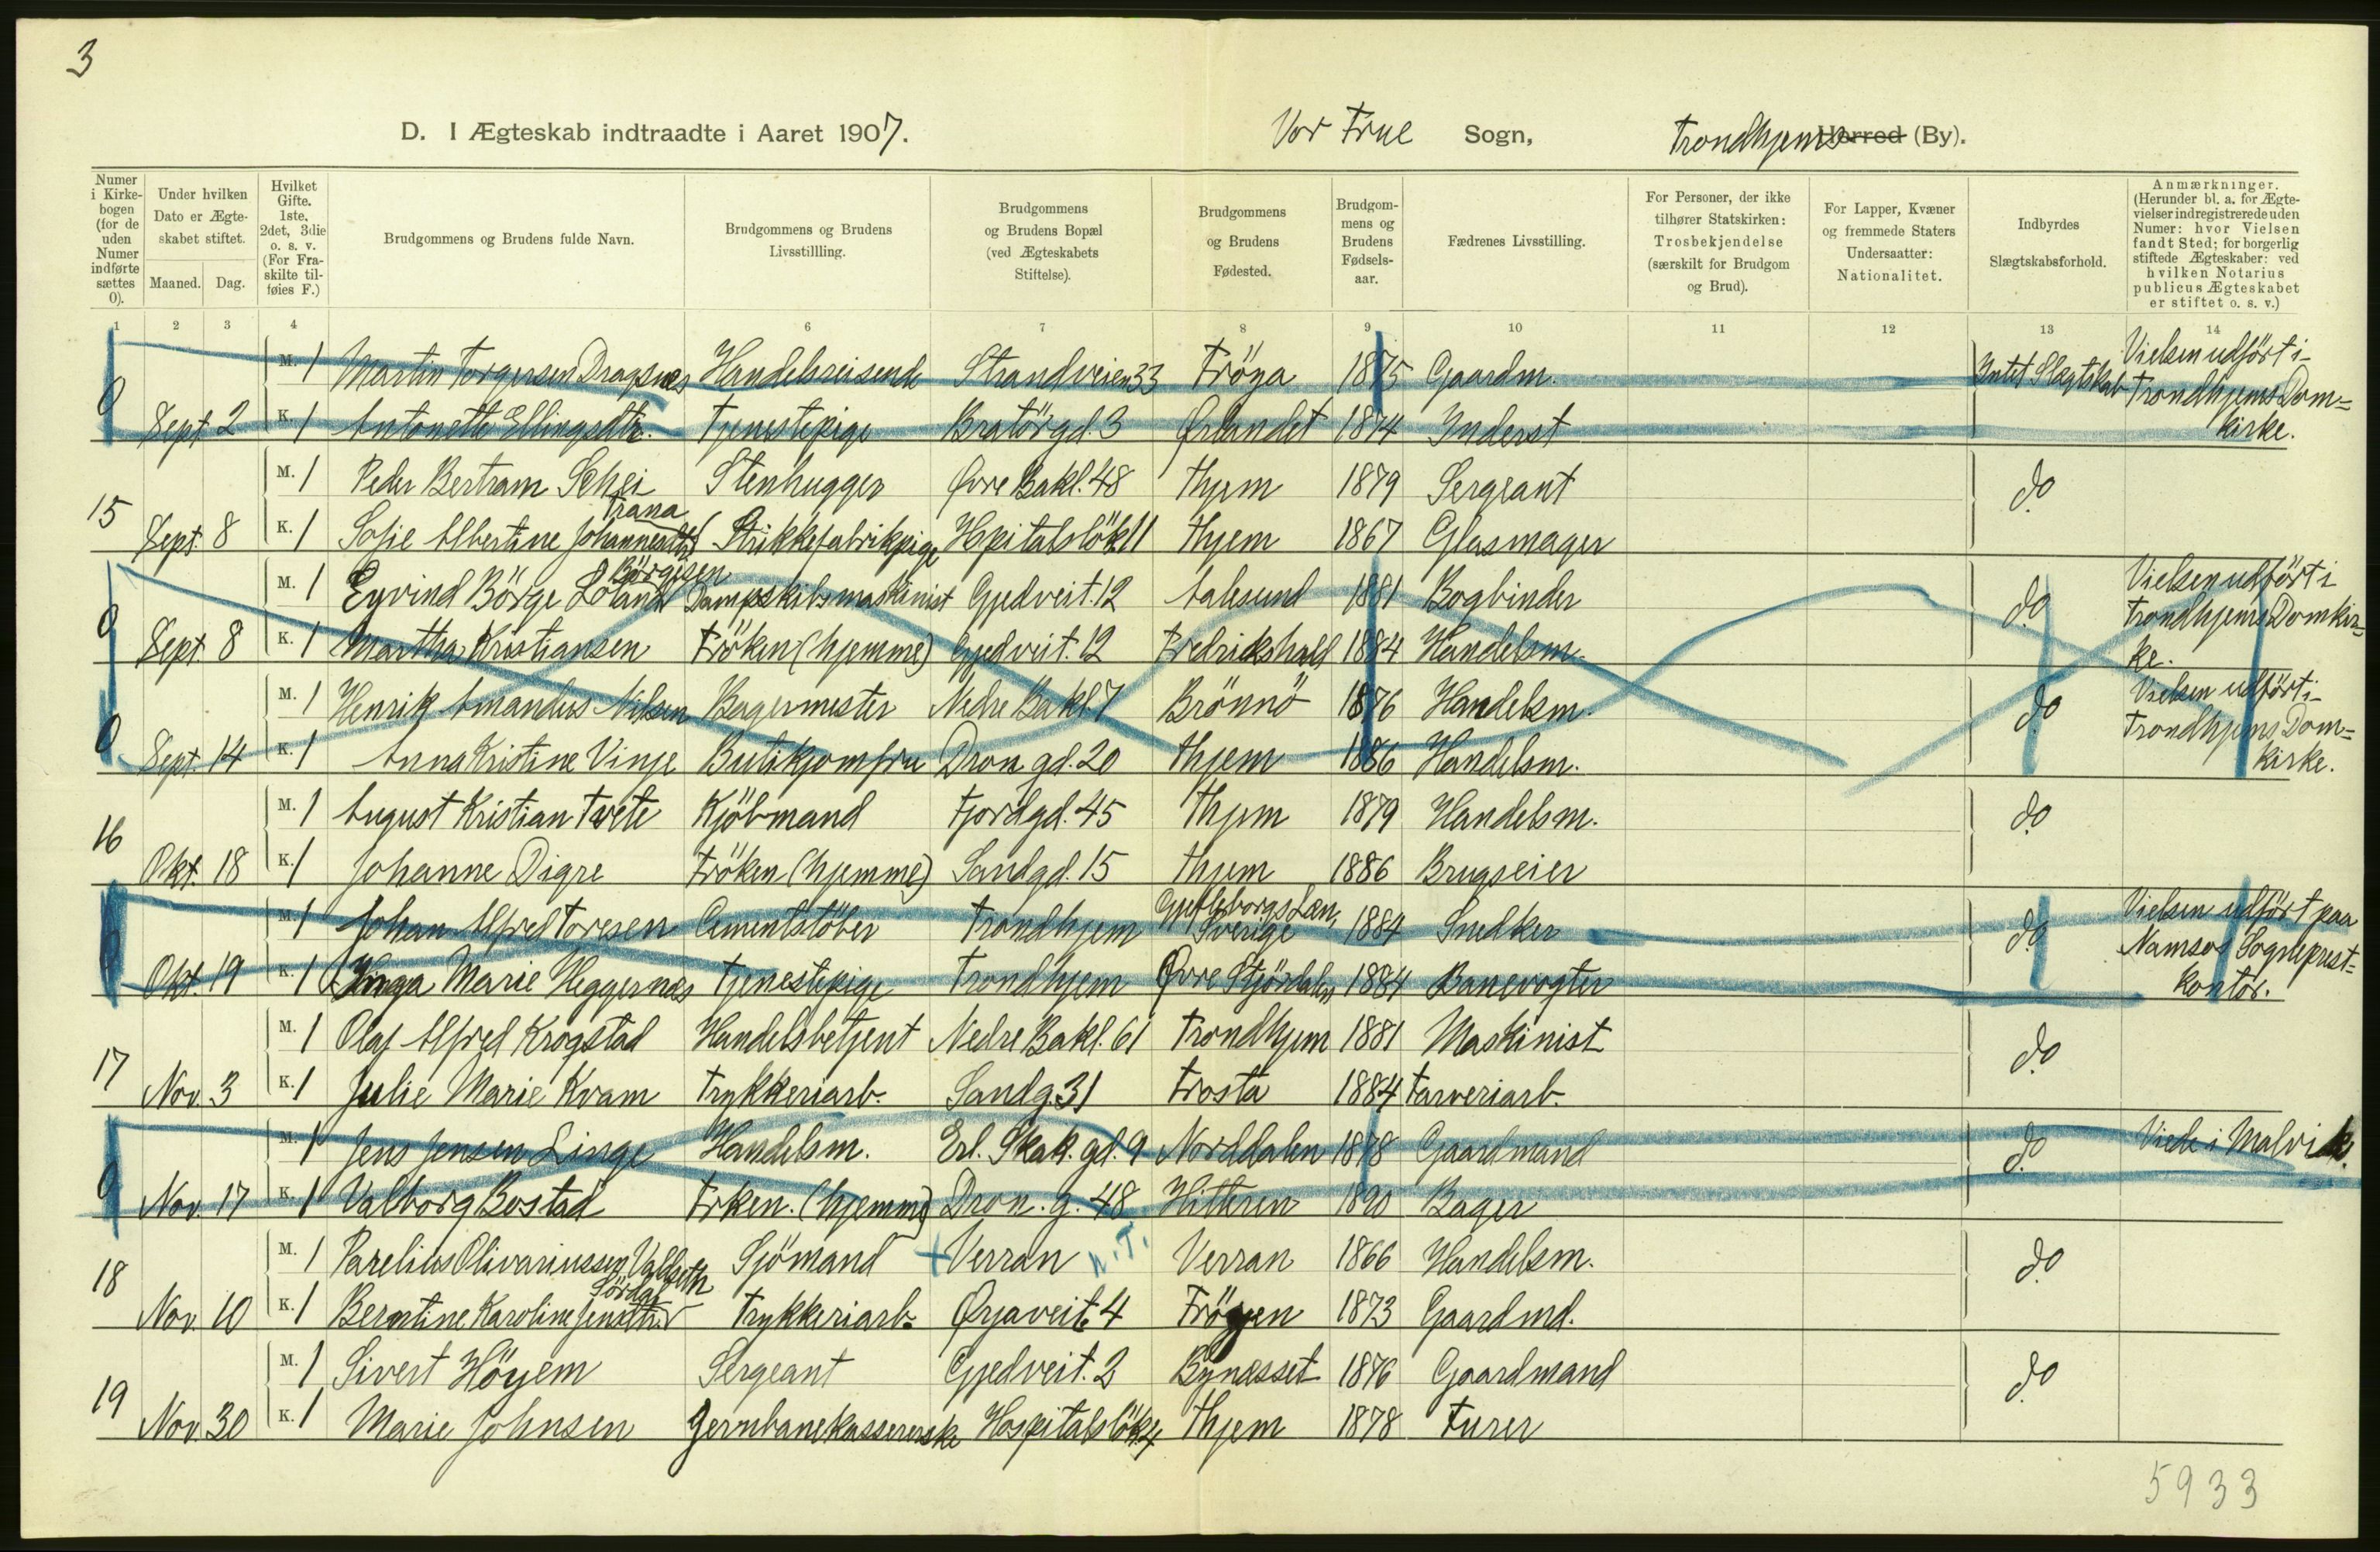 3
D. I Ægteskab indtraadte i Aaret 1907. Vor Frue Sogn, Trondhjems Herred (By).
Numer i Kirkebogen (for de uden Numer indførte sættes 0).
Under hvilken Dato er Ægteskabet stiftet.
Maaned. Dag.
Hvilket Gifte. 1ste, 2det, 3die o. s. v. (For Fraskilte tilføies F.)
Brudgommens og Brudens fulde Navn.
Brudgommens og Brudens Livsstillling.
Brudgommens og Brudens Bopæl (ved Ægteskabets Stiftelse).
Brudgommens og Brudens Fødested.
Brudgommens og Brudens Fødselsaar.
Fædrenes Livsstilling.
For Personer, der ikke tilhører Statskirken: Trosbekjendelse (særskilt for Brudgom og Brud).
For Lapper, Kvæner og fremmede Staters Undersaatter: Nationalitet.
Indbyrdes Slægtskabsforhold.
Anmærkninger. (Herunder bl. a. for Ægtevielser indregistrerede uden Numer: hvor Vielsen fandt Sted; for borgerlig stiftede Ægteskaber: ved hvilken Notarius publicus Ægteskabet er stiftet o. s. v.)
1 2 3 4 6 7 8 9 10 11 12 13 14
M. 1 Martin Torgersen Dragsnes Handelsreisende Strandveien 33 Fröya 1875 Gaardm. Intet Slægtskab Vielsen udfört i Trondhjems Domkirke.
0 Sept 2 K. 1 Antonette Ellingsdtr. Tjenestepige Bratörgd. 3 Ørlandet 1874 Inderst
M. 1 Peder Bertram Schei Stenhugger Øvre Bakl. 48 Thjem 1879 Sergeant do
15 Sept. 8 K. 1 Sofie Albertine Johannesdtr Trana Strikkefabrikpige Hspitalslök 11 Thjem 1867 Glasmager
M. 1 Eyvind Börge Loland Börgesen Dampskibsmaskinist Gjedveit. 12 Aalesund 1881 Bogbinder do Vielsen udfört i Trondhjems Domkirke.
0 Sept. 8 K. 1 Martha Kristiansen Fröken (hjemme) Gjedveit. 12 Fredrikshald 1884 Handelsm.
M. 1 Henrik Amandus Nilsen Bagermester Nedre Bakl. 7 Brönnö 1876 Handelsm. do Vielsen udfört i Trondhjems Domkirke.
0 Sept. 14 K. 1 Anna Kristine Vinje Butikjomfru Dron gd. 20 Thjem 1886 Handelsm.
M. 1 August Kristian Tvete Kjöbmand Fjordgd. 45 Thjem 1879 Handelsm. do
16 Okt. 18 K. 1 Johanne Digre Fröken (hjemme) Sandgd. 15 Thjem 1886 Brugseier
M. 1 Johan Alfred Toresen Cementstöber Trondhjem Gjefleborgs Læn, Sverige 1884 Snedker do Vielsen udfört paa Namsos Sogneprestkontor.
0 Okt. 19 K. 1 Inga Marie Heggernæs Tjenestepige Trondhjem Øvre Stjördalen 1884 Banevogter
M. 1 Olaf Alfred Krogstad Handelsbetjent Nedre Bakl. 61 Trondhjem 1881 Maskinist do
17 Nov. 3 K. 1 Julie Marie Kvam Trykkeriarb. Sandg. 31 Frosta 1884 Farveriarb.
M. 1 Jens Jensen Linge Handelsm. Erl. Skak. gd. 9 Norddalen 1878 Gaardmand do Viede i Malvik.
0 Nov. 17 K. 1 Valborg Bostad Frken. (hjemme) Dron. g. 48 Hitteren 1890 Bager
M. 1 Parelius Olivariussen Valseth Sjömand + Verran n. T. Verran 1866 Handelsm. do
18 Nov. 10 K. 1 Berntine Karoline Jensdtr. Sördal Trykkeriarb. Øjaveit. 4 Fröyen 1873 Gaardmd.
M. 1 Sivert Höyem Sergeant Gjedveit. 2 Bynæsset 1876 Gaardmand do
19 Nov. 30 K. 1 Marie Johnsen Jernbanekassererske Hospitalslök. 4 Thjem 1878 Furer
5933